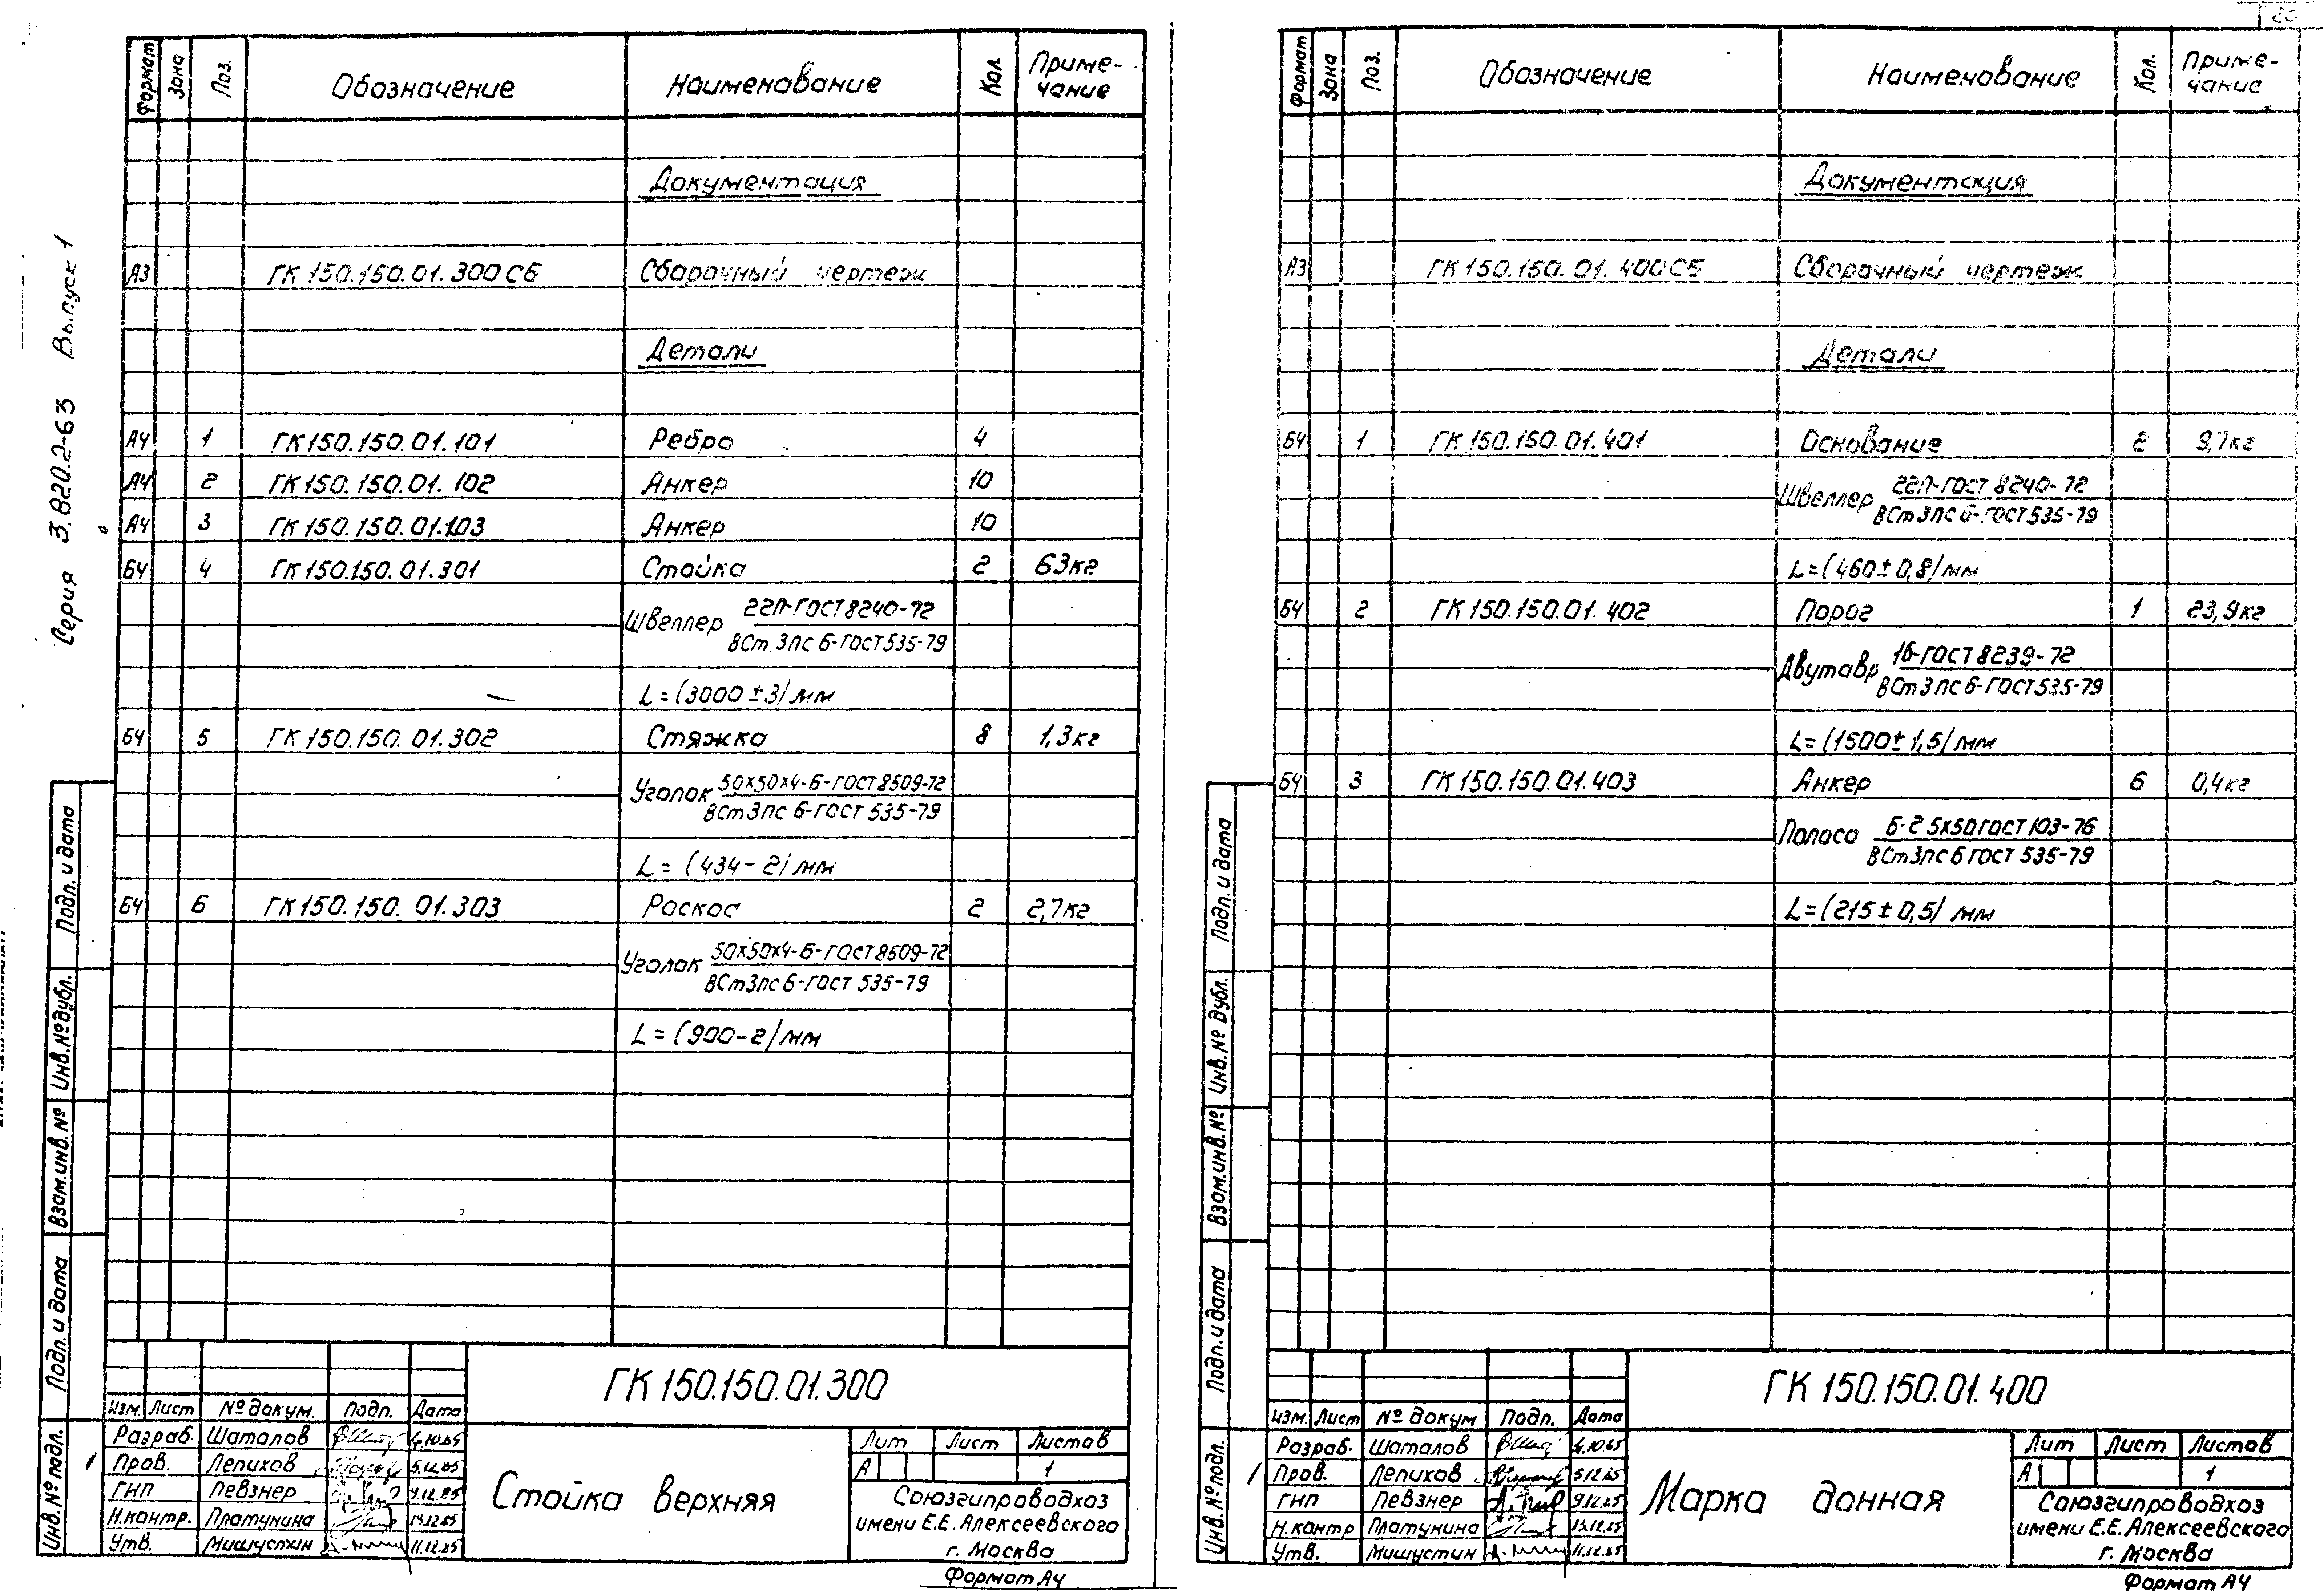 Серия 3.820.2-63 Выпуск 1
Формат Зона Поз. Обозначение Наименование Кол. Приме-
чание
Документация
А3 ГК 150.150.01.300СБ Сборочный чертеж
Детали
А4 1 ГК150.150.01.101 Ребро 4
А4 2 ГК150.150.01.102 Анкер 10
А4 3 ГК150.150.01.103 Анкер 10
БЧ 4 ГК150.150.01.301 Стойка 2 63кг
22П-ГОСТ 8240-72
Швеллер
ВСт.3пс 6-ГОСТ 535-79
L=(3000±3)мм
БЧ 5 ГК150.150.01.302 Стяжка 8 1,3кг
50×50×4-Б-ГОСТ 8509-72
Уголок
ВСт3пс 6-ГОСТ 535-79
L=(434-2)мм
БЧ 6 ГК150.150.01.303 Раскос 2 2,7кг
50×50×4-Б-ГОСТ 8509-72
Уголок
ВСт3пс 6-ГОСТ 535-79
L=(900-2)мм
Подп. и дата
Инв.№дубл.
Взам.инв.№
Подп. и дата
Инв.№подл.
ГК150.150.01.300
Изм. Лист № докум. Подп. Дата
Разраб. Шаталов 4.10.85
Пров. Лепихов 5.12.85
ГИП Певзнер 9.12.85
Н.контр. Платунина 13.12.85
Утв. Мишустин 11.12.85
Стойка верхняя
Лит Лист Листов
А 1
Союзгипроводхоз
имени Е.Е.Алексеевского
г. Москва
Формат А4
Формат Зона Поз. Обозначение Наименование Кол. Приме-
чание
Документация
А3 ГК150.150.01.400СБ Сборочный чертеж
Детали
БЧ 1 ГК150.150.01.401 Основание 2 9,7кг
22П-ГОСТ 8240-72
Швеллер
ВСт3пс 6-ГОСТ 535-79
L=(460±0,8)мм
БЧ 2 ГК150.150.01.402 Порог 1 23,9кг
16-ГОСТ 8239-72
Двутавр
ВСт3пс 6-ГОСТ 535-79
L=(1500±1,5)мм
БЧ 3 ГК150.150.01.403 Анкер 6 0,4кг
Б-2 5×50 ГОСТ 103-76
Полоса
ВСт3пс 6 ГОСТ 535-79
L=(215±0,5)мм
Подп. и дата
Инв.№ дубл.
Взам.инв.№
Подп. и дата
Инв.№подл.
ГК150.150.01.400
Изм. Лист № докум Подп. Дата
Разраб. Шаталов 4.10.85
Пров. Лепихов 5.12.85
ГИП Певзнер 9.12.85
Н.контр Платунина 13.12.85
Утв. Мишустин 11.12.85
Марка донная
Лит Лист Листов
А 1
Союзгипроводхоз
имени Е.Е.Алексеевского
г. Москва
Формат А4